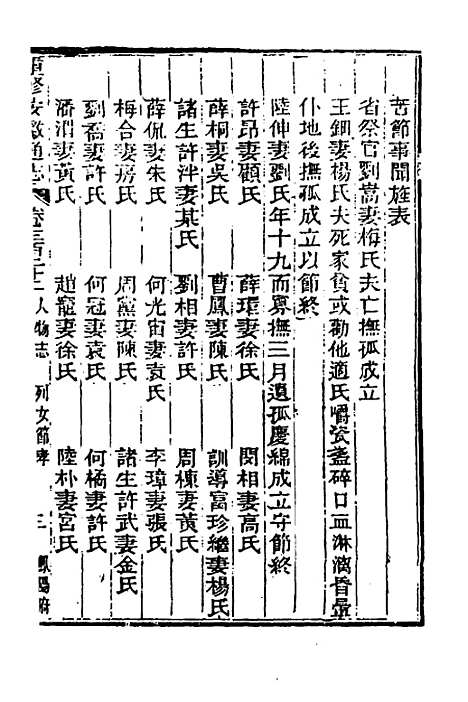 苦節事聞旌表
省祭官劉嵩妻梅氏夫亡撫孤成立
王鈿妻楊氏夫死家貧或勸他適氏嚼瓷盞碎口血淋漓昏暈
仆地後撫孤成立以節終
陸伸妻劉氏年十九而寡撫三月遺孤慶綿成立守節終
許昂妻顧氏　薛環妻徐氏　閔相妻高氏
薛桐妻吳氏　曹鳳妻陳氏　訓導富珍繼妻楊氏
諸生許泮妻某氏　劉相妻許氏　周棟妻黃氏
薛侃妻朱氏　何光宙妻袁氏　李璋妻張氏
梅合妻房氏　周黨妻陳氏　諸生許武妻金氏
劉喬妻許氏　何冠妻袁氏　何橘妻許氏
潘潤妻黃氏　趙寵妻徐氏　陸朴妻宮氏
重修安徽通志　卷三百二十二　人物志　列女節孝　三　鳳陽府